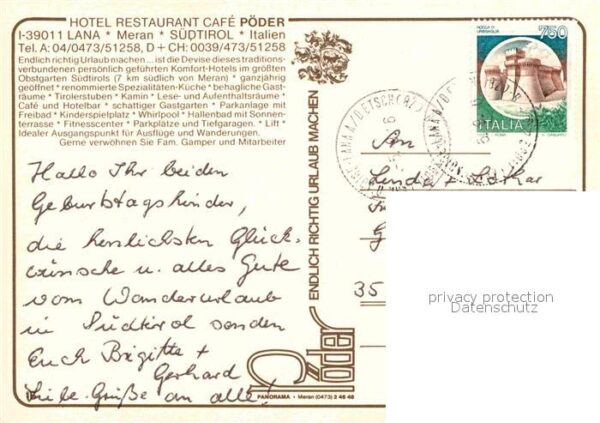 HOTEL RESTAURANT CAFÉ PÖDER
I-39011 LANA * Meran * SÜDTIROL * Italien
Tel. A: 04/0473/51258, D + CH: 0039/473/51258
Endlich richtig Urlaub machen ... ist die Devise dieses traditions-
verbundenen persönlich geführten Komfort-Hotels im größten
Obstgarten Südtirols (7 km südlich von Meran) * ganzjährig
geöffnet * renommierte Spezialitäten-Küche * behagliche Gast-
räume * Tirolerstuben * Kamin * Lese- und Aufenthaltsräume *
Café und Hotelbar * schattiger Gastgarten * Parkanlage mit
Freibad * Kinderspielplatz * Whirlpool * Hallenbad mit Sonnen-
terrasse * Fitnesscenter * Parkplätze und Tiefgaragen. * Lift *
Idealer Ausgangspunkt für Ausflüge und Wanderungen.
Gerne verwöhnen Sie Fam. Gamper und Mitarbeiter
Hallo Ihr beiden
Geburtstagskinder,
die herzlichsten Glück-
wünsche u. alles Gute
vom Wanderurlaub
in Südtirol senden
Euch Brigitte +
Gerhard
Liebe Grüße an alle!
ENDLICH RICHTIG URLAUB MACHEN
Pöder
PANORAMA • Meran (0473) 2 46 48
750
ITALIA
An
Linda + Lothar
35
privacy protection
Datenschutz